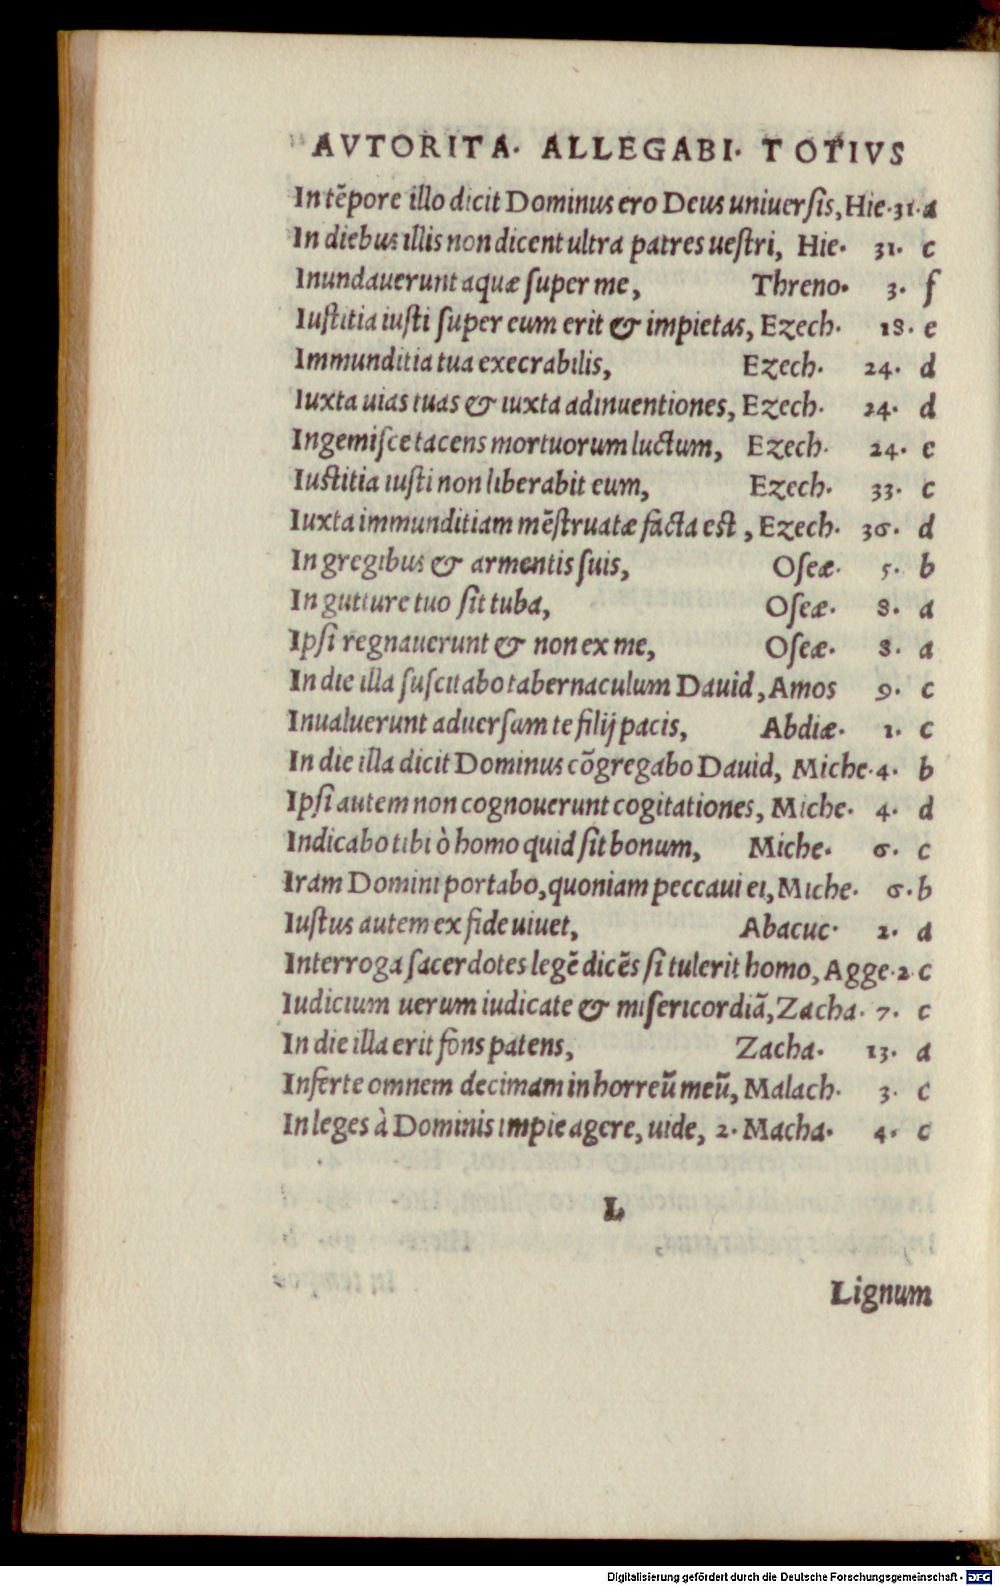 AVTORITA· ALLEGABI· TOTIVS
In tẽpore illo dicit Dominus ero Deus uniuerſis, Hie·31·a
In diebus illis non dicent ultra patres ueſtri, Hie· 31· c
Inundauerunt aquæ ſuper me, Threno· 3· f
Iuſtitia iuſti ſuper eum erit & impietas, Ezech· 18· e
Immunditia tua execrabilis, Ezech· 24· d
Iuxta uias tuas & iuxta adinuentiones, Ezech· 24· d
Ingemiſce tacens mortuorum luctum, Ezech· 24· e
Iuſtitia iuſti non liberabit eum, Ezech· 33· c
Iuxta immunditiam mẽſtruatæ facta est, Ezech· 36· d
In gregibus & armentis ſuis, Oſeæ· 5· b
In gutture tuo ſit tuba, Oſeæ· 8· a
Ipſi regnauerunt & non ex me, Oſeæ· 8· a
In die illa ſuſcitabo tabernaculum Dauid, Amos 9· c
Inualuerunt aduerſum te filij pacis, Abdiæ· 1· c
In die illa dicit Dominus cõgregabo Dauid, Miche·4· b
Ipſi autem non cognouerunt cogitationes, Miche· 4· d
Indicabo tibi ò homo quid ſit bonum, Miche· 6· c
Iram Domini portabo, quoniam peccaui ei, Miche· 6·b
Iuſtus autem ex fide uiuet, Abacuc· 2· a
Interroga ſacerdotes legẽ dicẽs ſi tulerit homo, Agge·2 c
Iudicium uerum iudicate & miſericordiã, Zacha· 7· c
In die illa erit fons patens, Zacha· 13· a
Inferte omnem decimam in horreũ meũ, Malach· 3· c
In leges à Dominis impie agere, uide, 2· Macha· 4· c
L
Lignum
Digitalisierung gefördert durch die Deutsche Forschungsgemeinschaft · DFG